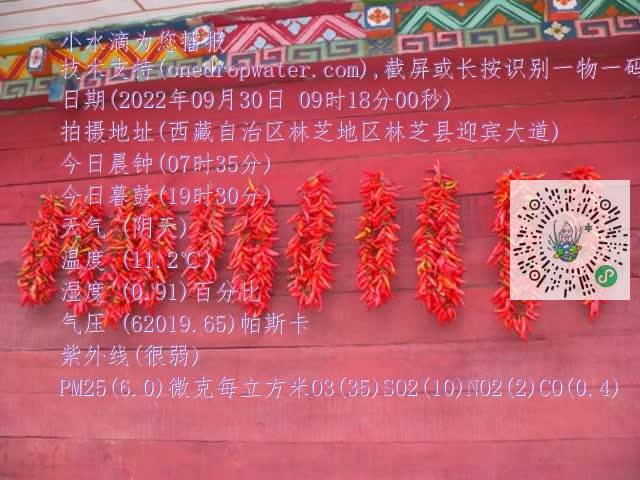 小水滴为您播报
技术支持(onedropwater.com),截屏或长按识别一物一码
日期(2022年09月30日 09时18分00秒)
拍摄地址(西藏自治区林芝地区林芝县迎宾大道)
今日晨钟(07时35分)
今日暮鼓(19时30分)
天气 (阴天)
温度 (11.2℃)
湿度 (0.91)百分比
气压 (62019.65)帕斯卡
紫外线(很弱)
PM25(6.0)微克每立方米O3(35)SO2(10)NO2(2)CO(0.4)